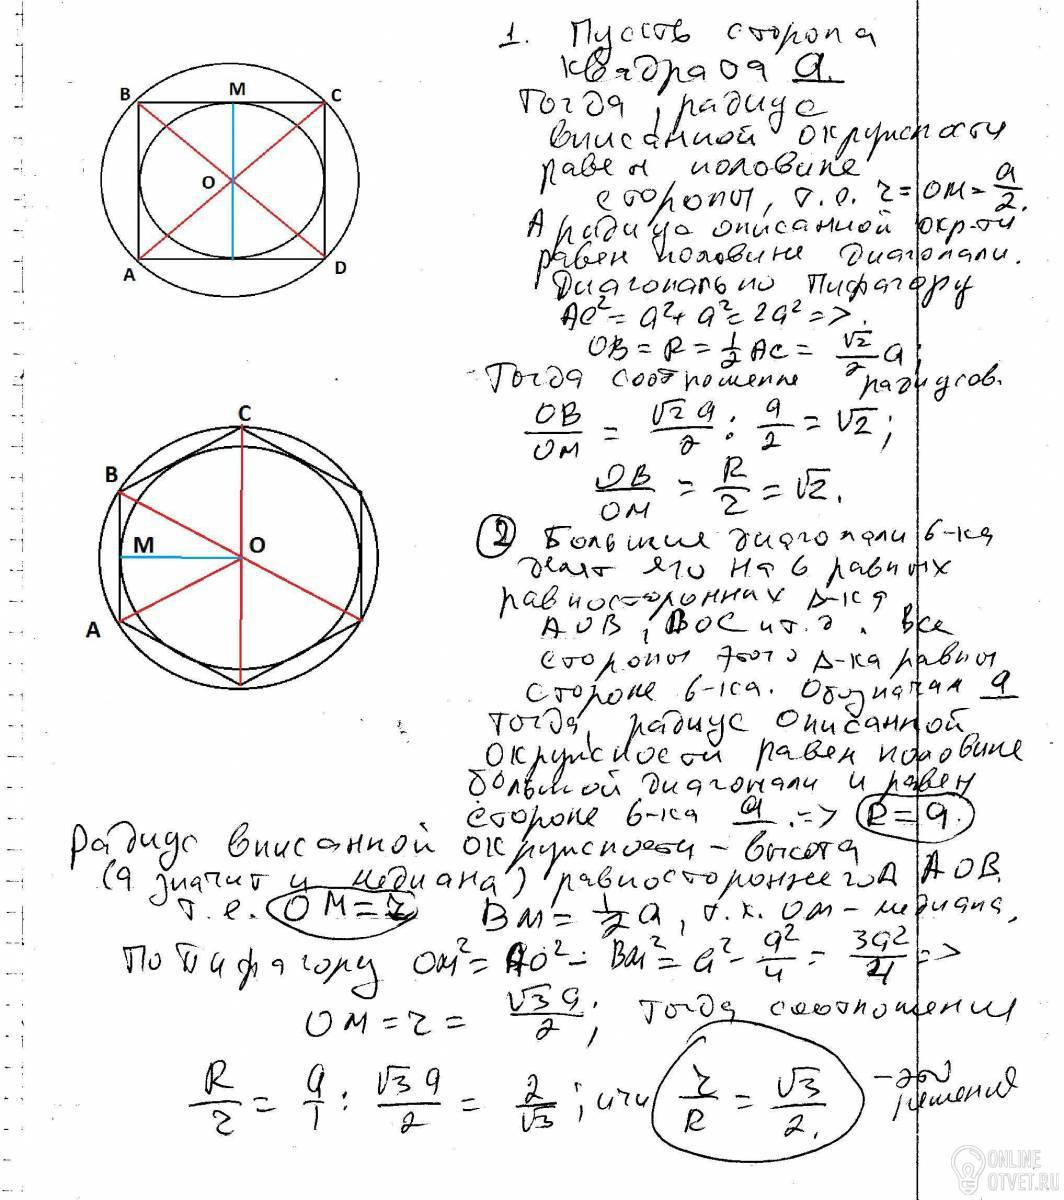 1. Пусть сторона
квадрата a.
Тогда, радиус
вписанной окружности
равен половине
стороны, т.е. r = OM = a/2.
А радиус описанной окр-ти
равен половине диагонали.
Диагональ по Пифагору
AC² = a² + a² = 2a² =>.
OB = R = 1/2 AC = √2/2 a;
Тогда соотношение радиусов.
OB/OM = √2 a/2 : a/2 = √2;
OB/OM = R/r = √2.
B M C
O
A D
② Большие диагонали 6-ка
делят его на 6 равных
равносторонних Δ-ка
AOB, BOC и т.д. Все
стороны этого Δ-ка равны
стороне 6-ка. Обозначам a
Тогда, радиус описанной
окружности равен половине
большой диагонали и равен
стороне 6-ка a. => R = a.
C
B
M O
A
Радиус вписанной окружности - высота
(а значит и медиана) равностороннего Δ AOB.
т.е. OM = r BM = 1/2 a, т.к. OM - медиана,
По Пифагору OM² = AO² - BM² = a² - a²/4 = 3a²/4 =>
OM = r = √3 a/2; Тогда соотношения
R/r = a/1 : √3 a/2 = 2/√3; или r/R = √3/2. - это
решения
ONLINE
OTVET.RU